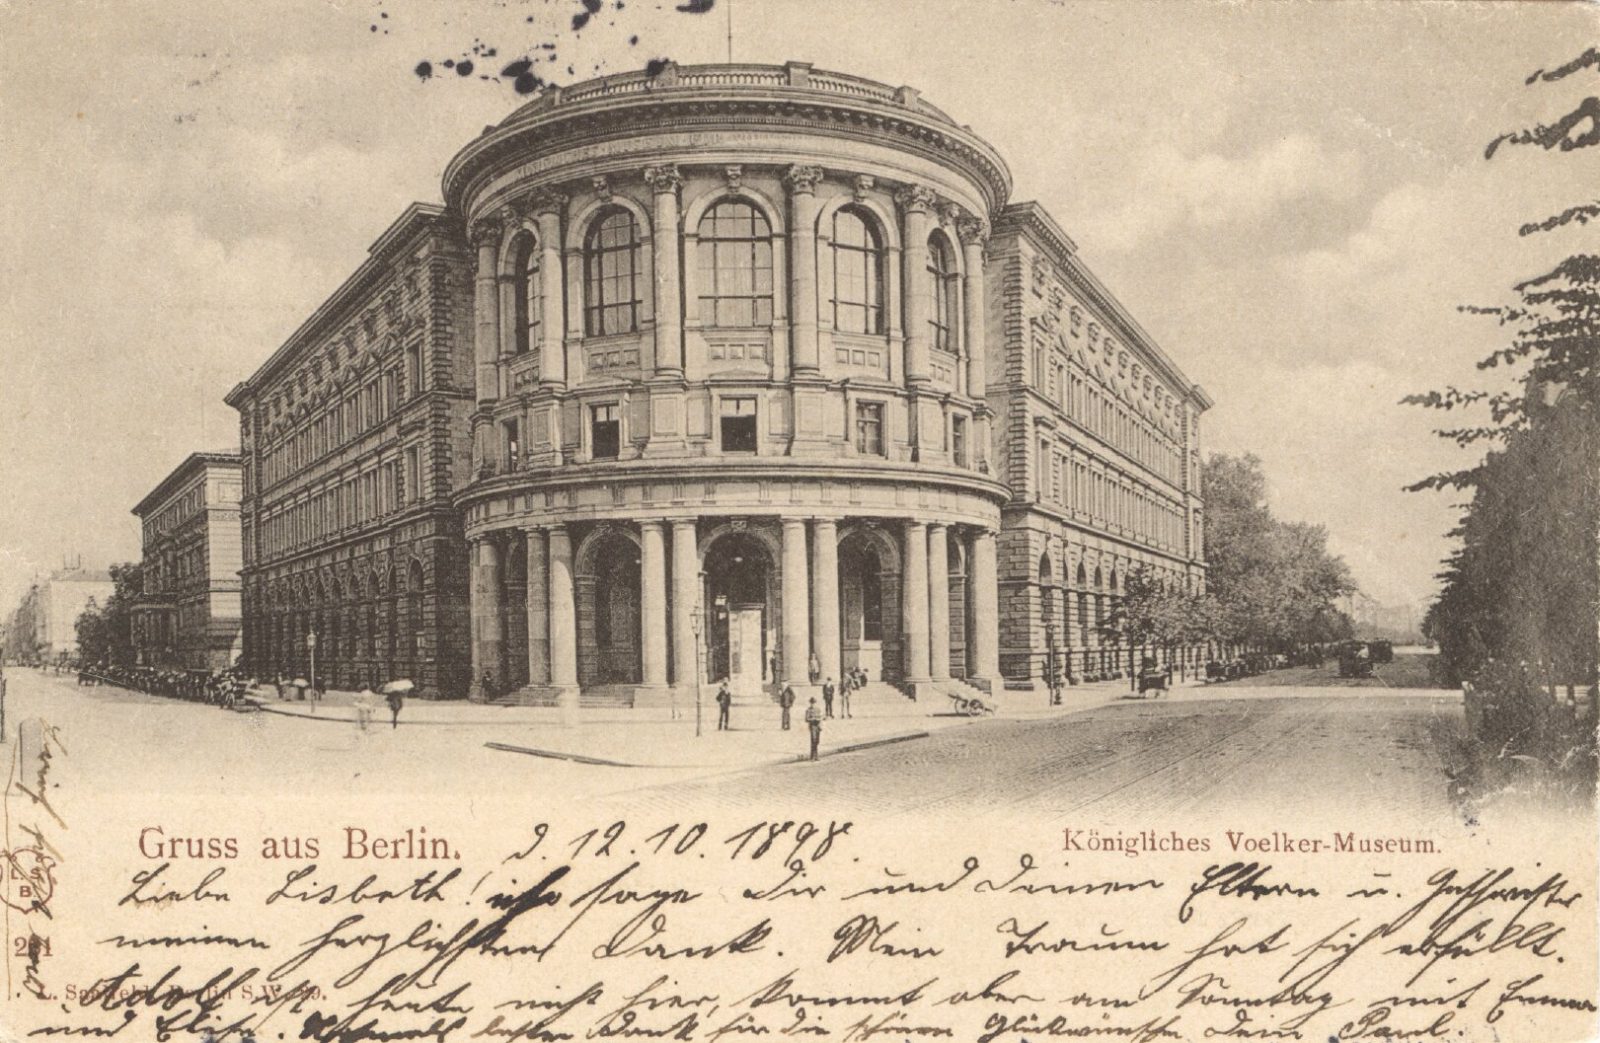 Gruss aus Berlin.
d. 12.10.1898.
Königliches Voelker-Museum.
Liebe Lisbeth! ich sage Dir und Deinen Eltern u. Geschwister
meinen herzlichsten Dank. Mein Traum hat sich erfüllt.
Adolf ist heute nicht hier, kommt aber am Sonntag mit Emma
und Elise. Nochmals besten Dank für die schönen Glückwünsche Dein Paul.
Berlin S.W.